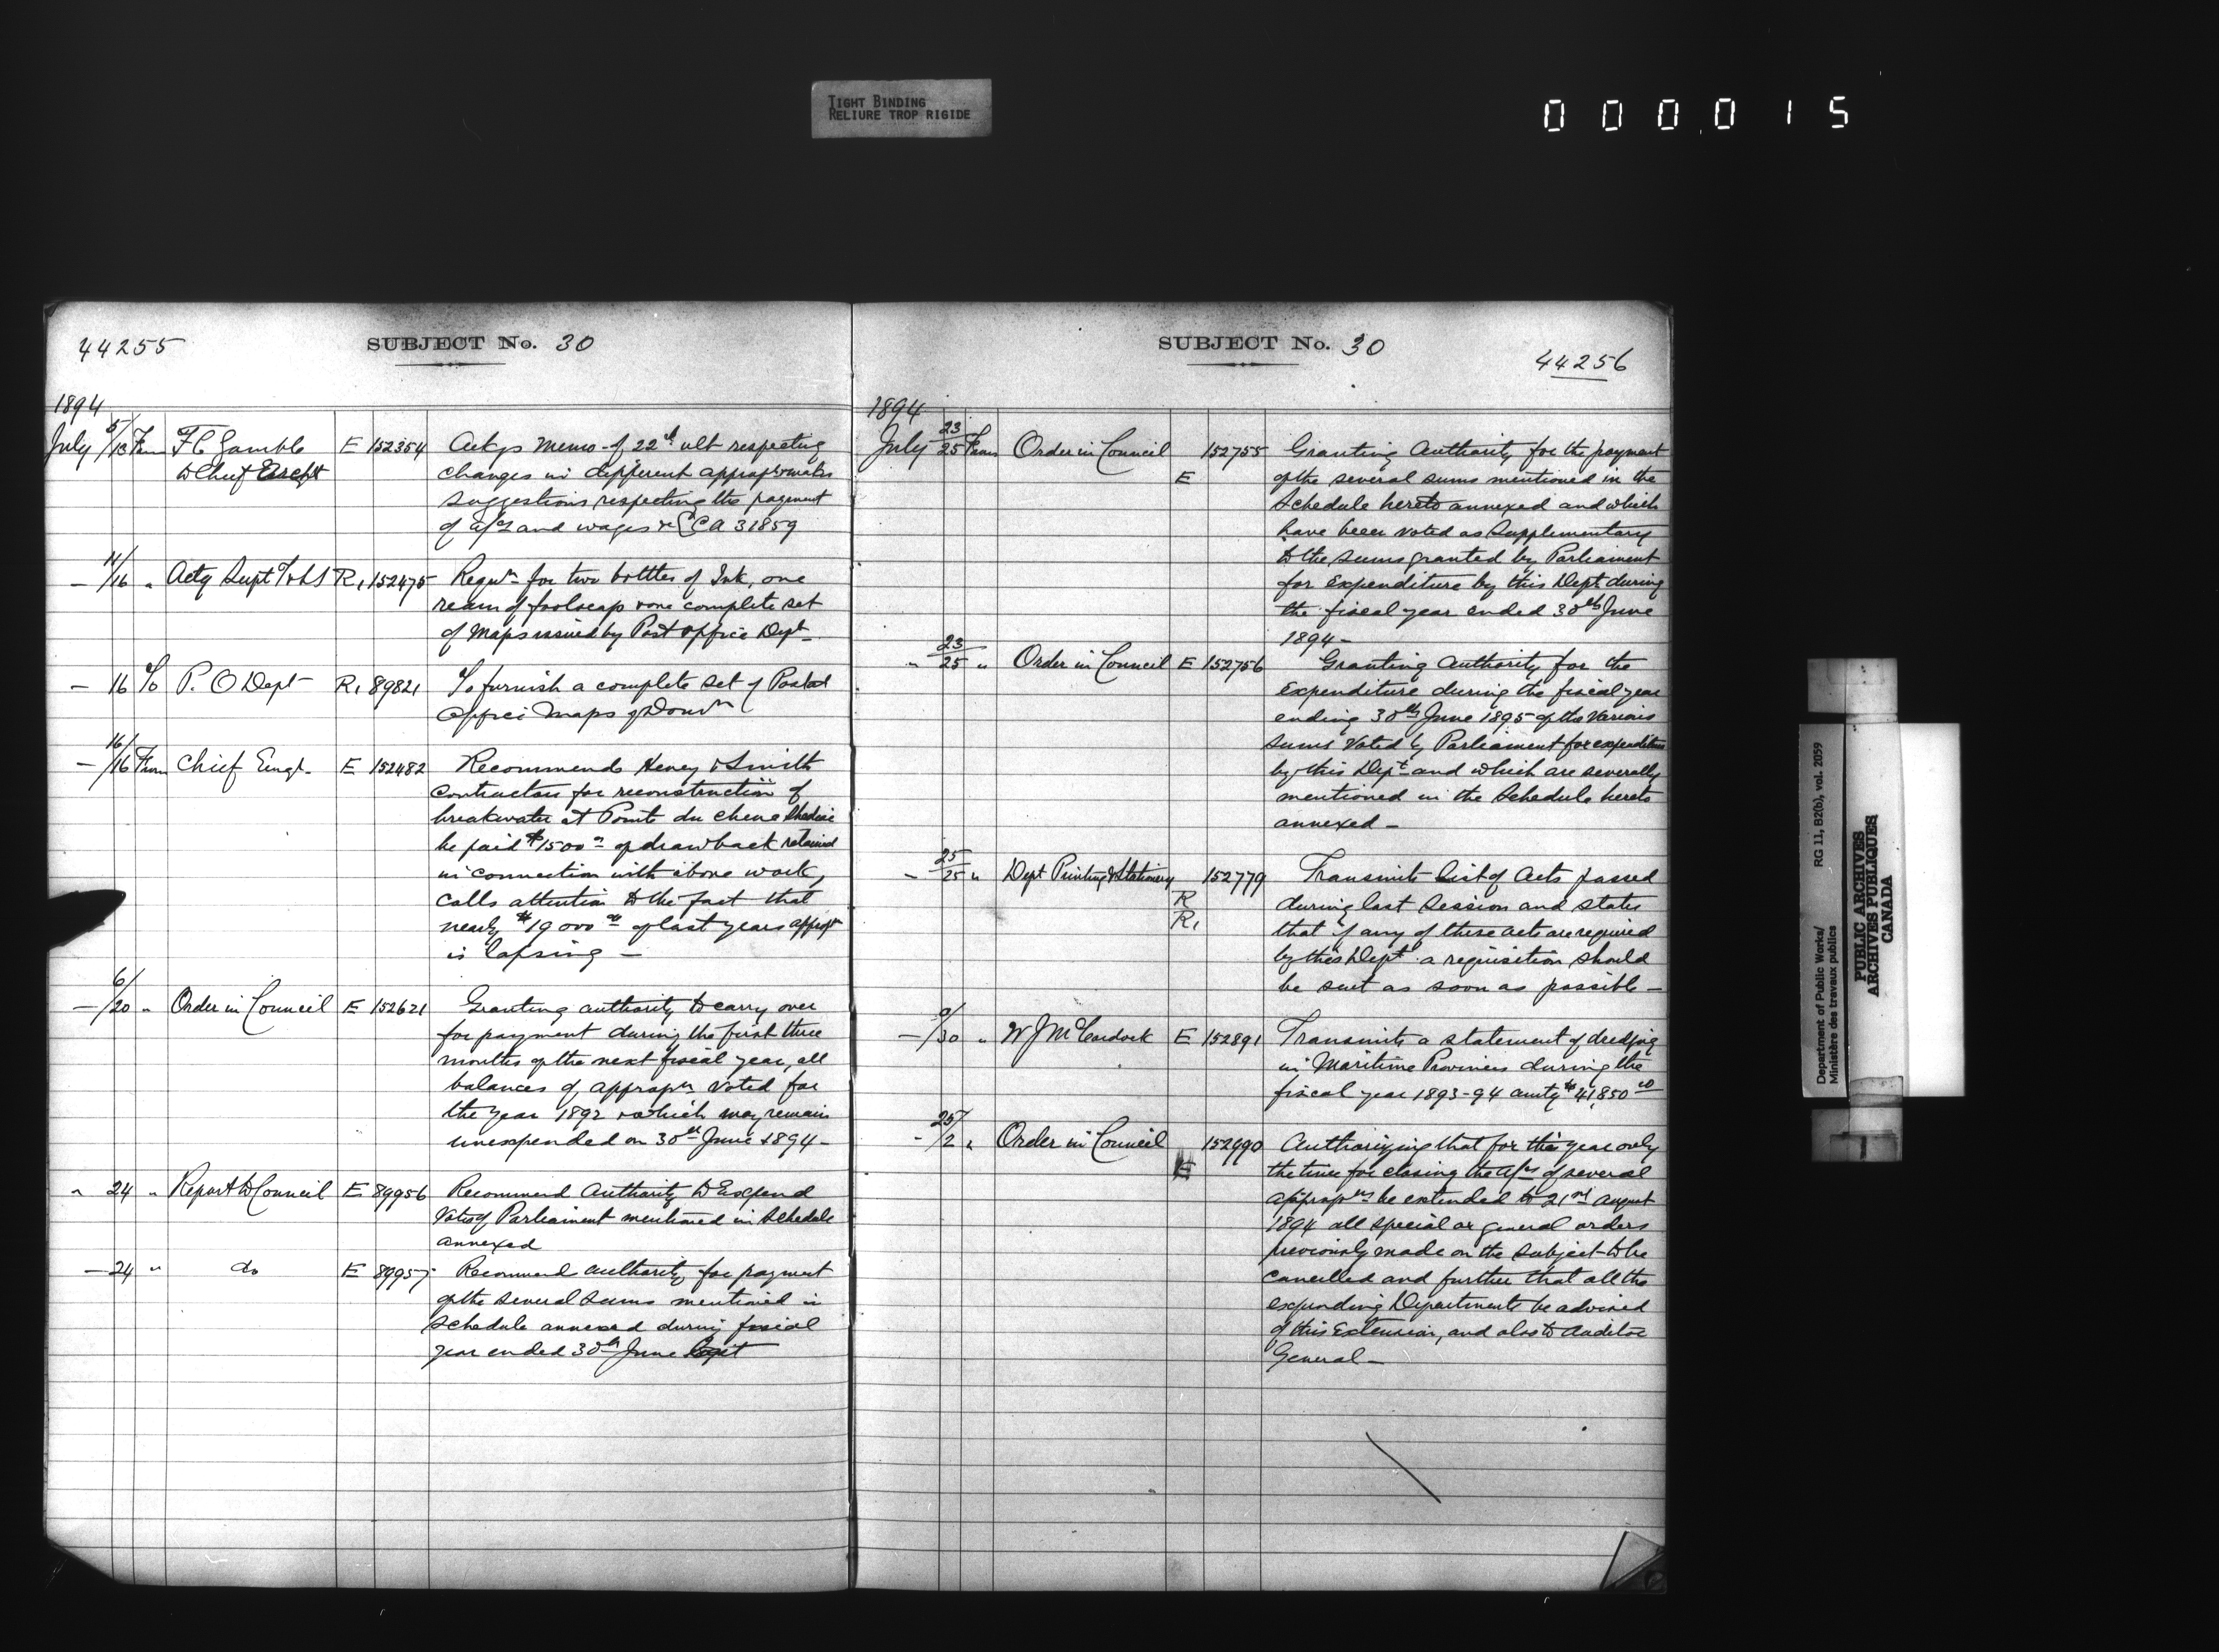 TIGHT BINDING
RELIURE TROP RIGIDE
000015
44255
SUBJECT No. 30
1894
July 5/13 From F C Gamble E 152354 Ackgs memo of 22nd ult respecting
to Chief Archt changes in different appropr makes
suggestions respecting the payment
of a/cs and wages &c CA 31859
— 11/16 " Actg Supt T & L S R1 152475 Requn for two bottles of Ink, one
ream of foolscap & one complete set
of Maps issued by Post Office Dept
— 16 To P. O Dept R1 89821 To furnish a complete set of Postal
Office Maps of Domn
— 16/16 From Chief Engr E 152482 Recommends Heney & Smith
contractors for reconstruction of
breakwater at Pointe du Chene Shediac
be paid $1500 00 of drawback retained
in connection with above work,
calls attention to the fact that
nearly $19000 00 of last years appropr
is lapsing —
— 6/20 " Order in Council E 152621 Granting authority to carry over
for payment during the first three
months of the next fiscal year, all
balances of appropn voted for
the year 1892 & which may remain
unexpended on 30th June 1894 —
" 24 " Report to Council E 89956 Recommend Authority to Expend
Votes of Parliament mentioned in Schedule
annexed
— 24 " do E 89957 Recommend authority for payment
of the several sums mentioned in
Schedule annexed during fiscal
year ended 30th June
SUBJECT No. 30
44256
1894
July 23/25 From Order in Council 152755 Granting Authority for the payment
E of the several sums mentioned in the
Schedule hereto annexed and which
have been voted as Supplementary
to the sums granted by Parliament
for Expenditure by this Dept during
the fiscal year ended 30th June
1894 —
" 23/25 " Order in Council E 152756 Granting Authority for the
Expenditure during the fiscal year
ending 30th June 1895 of the various
sums voted by Parliament for expenditure
by this Dept and which are severally
mentioned in the Schedule hereto
annexed —
— 25/25 " Dept Printing & Stationery 152779 Transmits list of Acts passed
R during last Session and states
R1 that if any of these acts are required
by this Dept a requisition should
be sent as soon as possible —
— /30 " W J McCordock E 152891 Transmits a statement of dredging
in Maritime Provinces during the
fiscal year 1893-94 amtg $41,850 00
— 25/2 " Order in Council 152990 Authorizing that for this year only
E the time for closing the a/cs of several
appropns be extended to 21st August
1894 all special or general orders
previously made on the subject to be
cancelled and further that all the
expending Departments be advised
of this Extension, and also to Auditor
General —
Department of Public Works/ RG 11, B2(b), vol. 2059
Ministère des travaux publics
PUBLIC ARCHIVES
ARCHIVES PUBLIQUES
CANADA